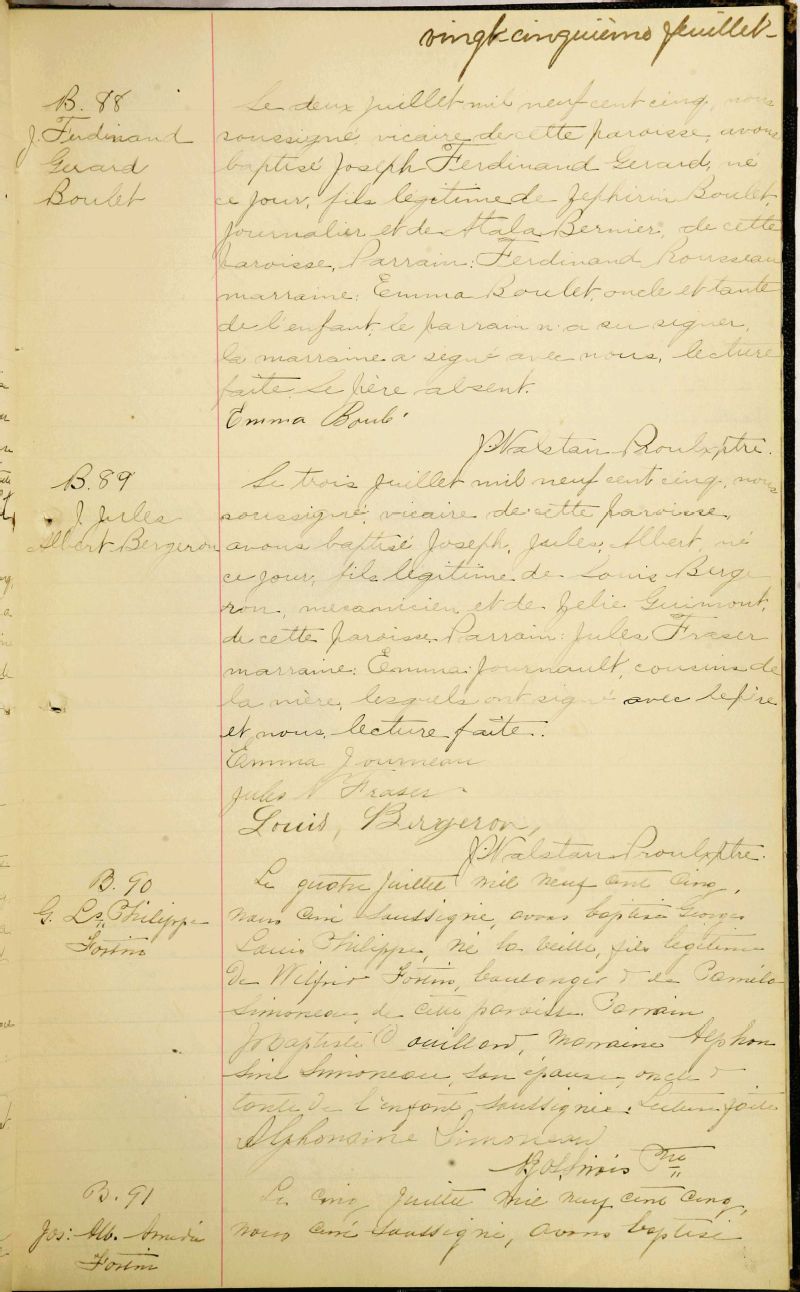 vingt-cinquième feuillet-
B. 88
J. Ferdinand
Gerard
Boulet
Le deux juillet mil neuf cent cinq, nous
soussigné vicaire de cette paroisse, avons
baptisé Joseph Ferdinand Gerard, né
ce jour, fils legitime de Zephirin Boulet,
journalier et de Atala Bernier, de cette
paroisse, Parrain: Ferdinand Rousseau
marraine: Emma Boulet, oncle et tante
de l'enfant, le parrain n'a su signer,
la marraine a signé avec nous, lecture
faite. Le père absent.
Emma Boulé
J. Walstan Proulx ptre.
B. 89
J. Jules
Albert Bergeron
Le trois juillet mil neuf cent cinq, nous
soussigné, vicaire de cette paroisse,
avons baptisé Joseph, Jules, Albert, né
ce jour, fils legitime de Louis Berge
ron, mecanicien et de Zelie Guimont,
de cette paroisse. Parrain: Jules Fraser
marraine: Emma Journault, cousins de
la mère, lesquels ont signé avec le père
et nous, lecture faite.
Emma Journeau
Jules Fraser
Louis, Bergeron,
J. Walstan Proulx ptre.
B. 90
G. Ls Philippe
Fortin
Le quatre juillet mil neuf cent cinq,
nous curé soussigné, avons baptisé Georges
Louis Philippe, né la veille, fils legitime
de Wilfrid Fortin, boulanger & de Paméla
Simoneau, de cette paroisse. Parrain
Jo baptiste Ouillard, marraine Alphon
sine Simoneau, son épouse, oncle &
tante de l'enfant, soussignée. Lecture faite
Alphonsine Simoneau
Ptre
B. 91
Jos: Alb. Amédée
Fortin
Le cinq juillet mil neuf cent cinq,
nous curé soussigné, avons baptisé